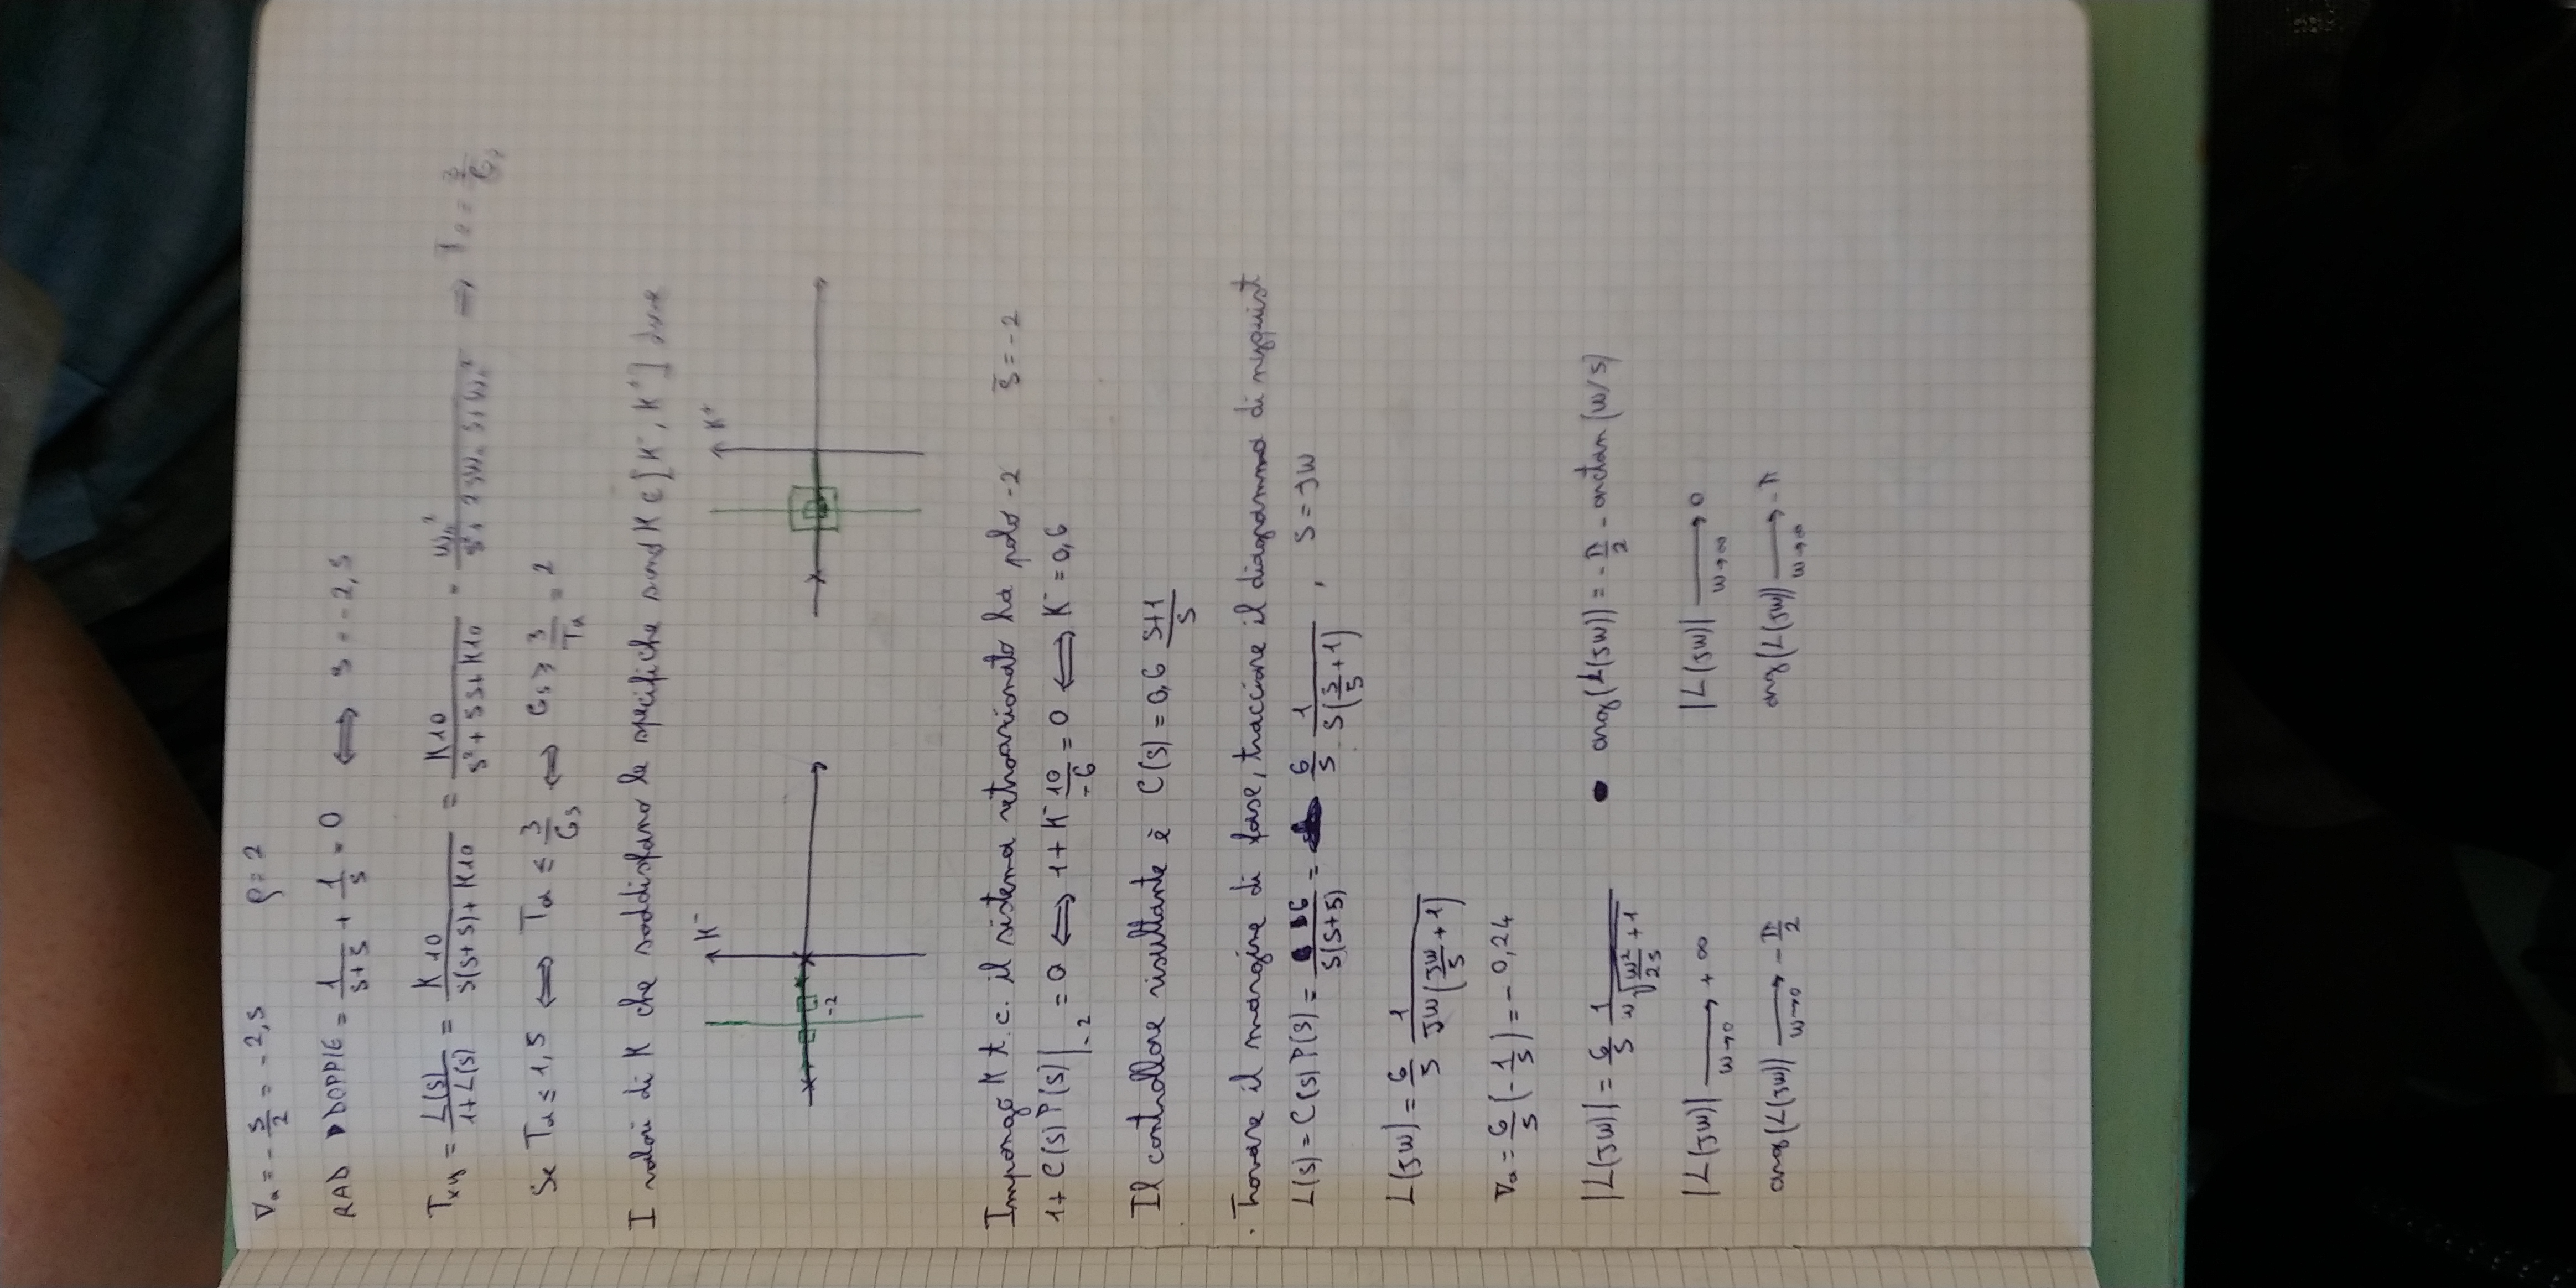 ∇a = - 5/2 = - 2,5 ρ = 2
RAD DOPPIE = 1/(s+5) + 1/s = 0 ⟺ s = -2,5
Txy = L(s)/(1+L(s)) = K10/(s(s+5)+K10) = K10/(s²+5s+K10) = ωn²/(s²+2δωn s+ωn²) ⟹ Ta = 3/Gs
Se Ta ≤ 1,5 ⟺ Ta ≤ 3/Gs ⟺ Gs ≥ 3/Ta = 2
I valori di K che soddisfano le specifiche sono K ∈ [K⁻, K⁺] dove
K⁻ K⁺
-2
Impongo K t.c. il sistema retroazionato ha polo -2 s̄ = -2
1 + C(s)P(s)|₋₂ = 0 ⟺ 1 + K⁻ 10/-6 = 0 ⟺ K⁻ = 0,6
Il controllore risultante è C(s) = 0,6 (s+1)/s
· Trovare il margine di fase, tracciare il diagramma di nyquist
L(s) = C(s)P(s) = 6/(s(s+5)) = 6/5 1/(s(s/5+1)) , s = jω
L(jω) = 6/5 1/(jω(jω/5+1))
∇a = 6/5 (-1/5) = - 0,24
|L(jω)| = 6/5 1/(ω√(ω²/25+1)) arg(L(jω)) = -π/2 - arctan(ω/5)
|L(jω)| ⟶ω→0 +∞ |L(jω)| ⟶ω→∞ 0
arg(L(jω)) ⟶ω→0 -π/2 arg(L(jω)) ⟶ω→∞ -π